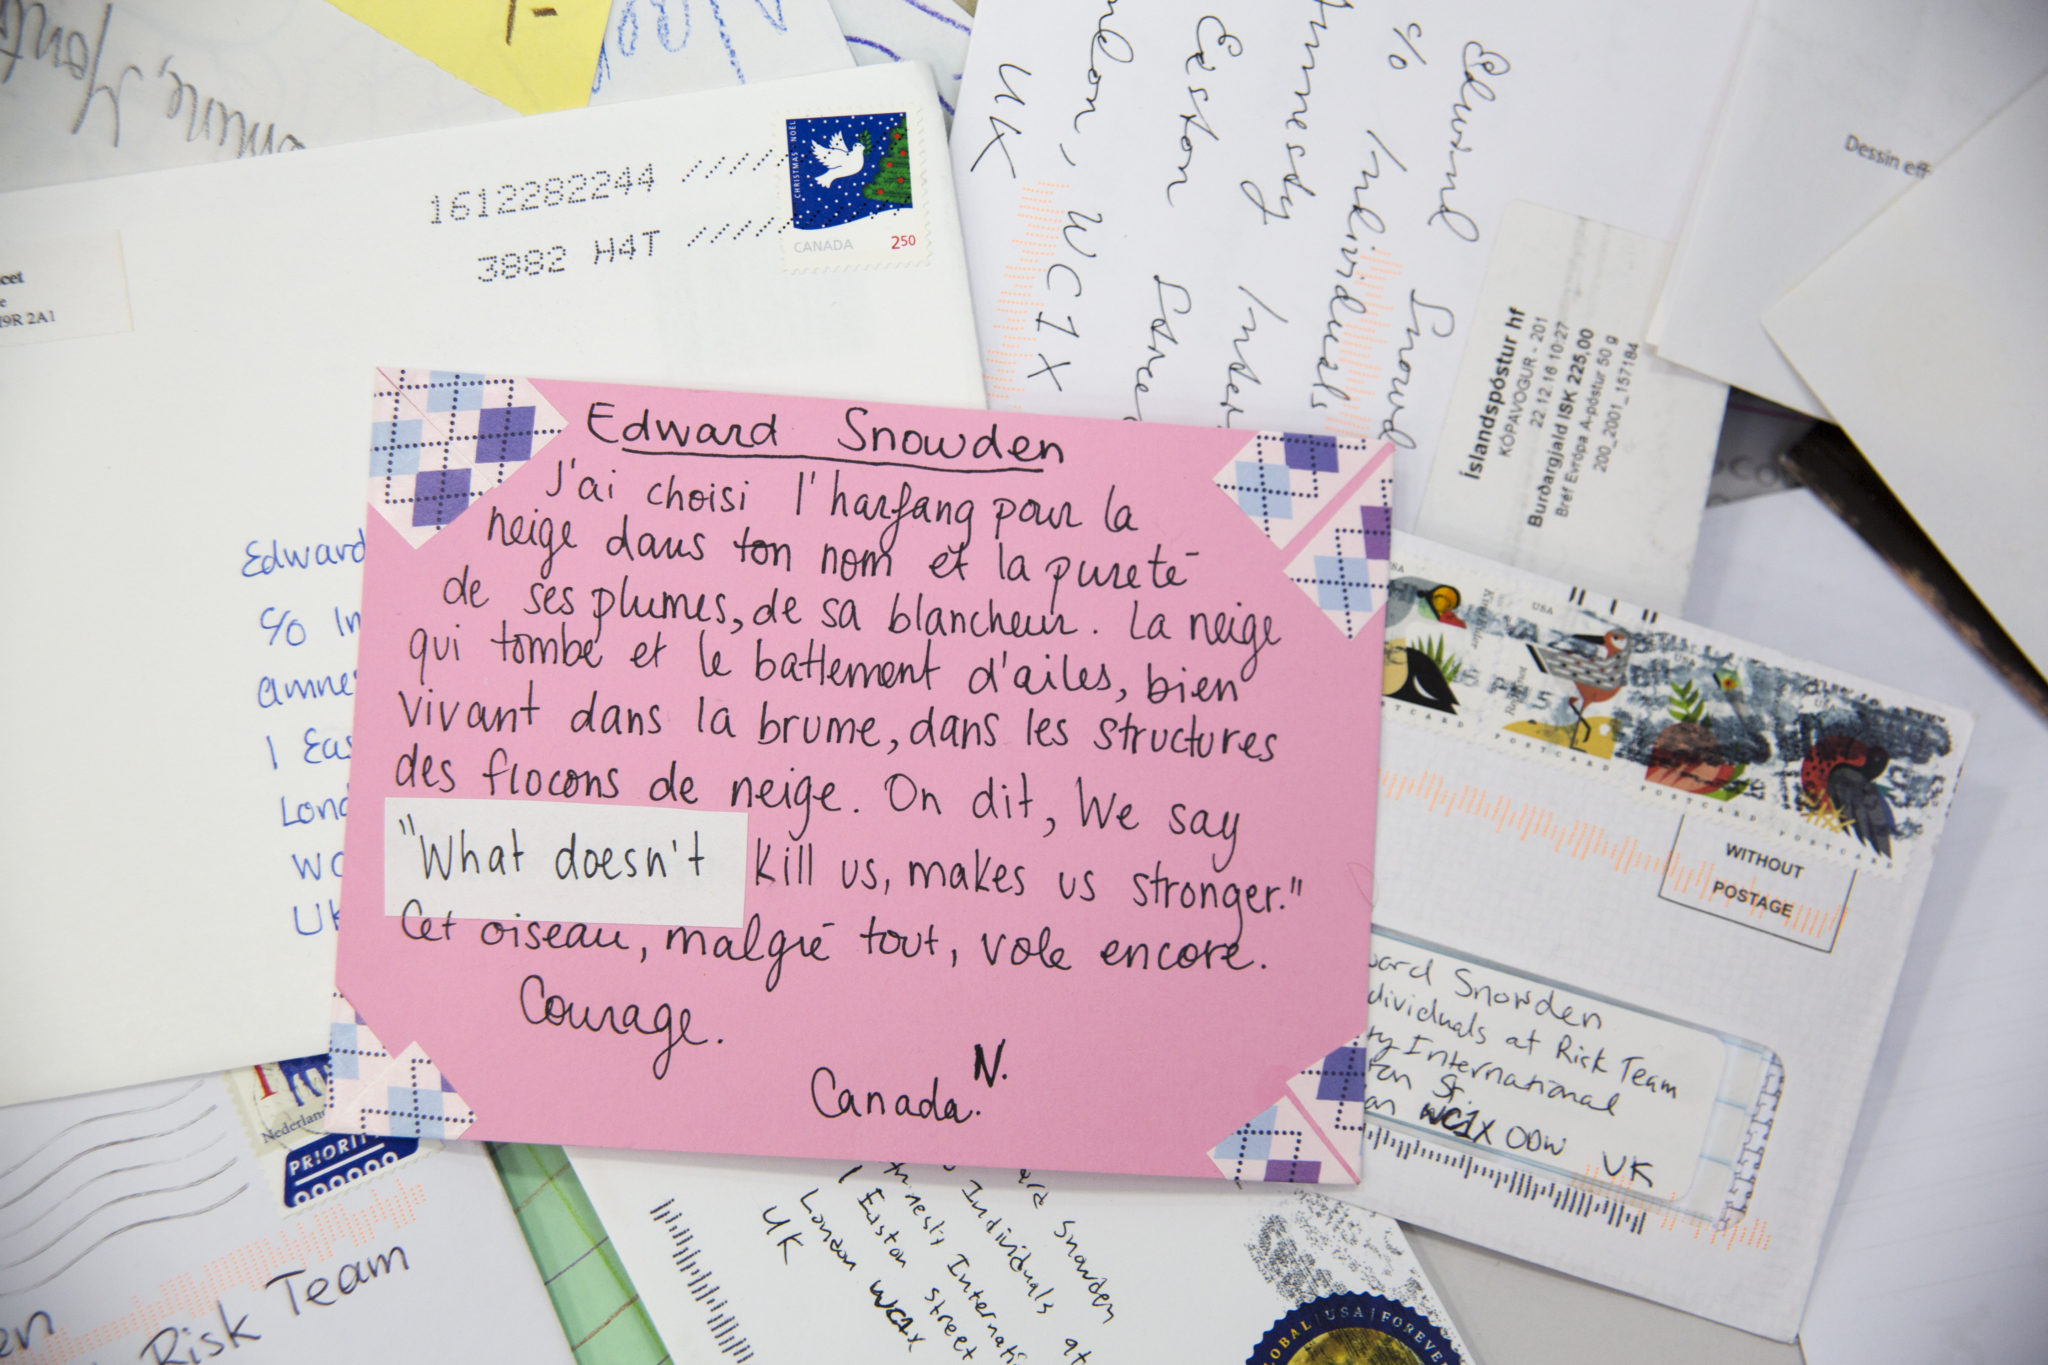 Edward Snowden
J'ai choisi l'harfang pour la
neige dans ton nom et la pureté
de ses plumes, de sa blancheur. La neige
qui tombe et le battement d'ailes, bien
vivant dans la brume, dans les structures
des flocons de neige. On dit, We say
"What doesn't kill us, makes us stronger."
Cet oiseau, malgré tout, vole encore.
Courage.
N.
Canada.
1612282244
3882 H4T
CHRISTMAS NOEL
CANADA 250
J9R 2A1
Edward
c/o In
amne
1 Eas
Lond
WC
UK
Edward Snowd
c/o Individuals
Amnesty Inter
Easton Stree
ndon, WC1X
UK
Dessin eff
Íslandspóstur hf
KÓPAVOGUR - 201
22.12.16 10:27
Burðargjald ISK 225,00
Bréf Evrópa A-póstur 50 g
200_2001_157184
USA
POSTCARD POSTCARD POSTCARD POSTCARD
WITHOUT
POSTAGE
ward Snowden
dividuals at Risk Team
ry International
ton St.
on WC1X 0DW UK
Nederlan
PRIORIT
en
Risk Team
ard Snowden
Individuals at
mnesty Internati
1 Easton street
London WC1X
UK
OBAL | USA | FOREVE